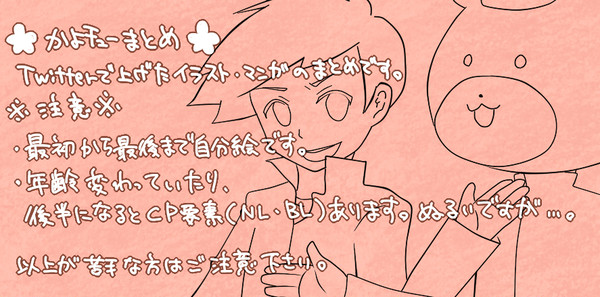 かよチューまとめ
Twitterで上げたイラスト・マンガのまとめです。
※注意※
・最初から最後まで自分絵です。
・年齢変わっていたり、
後半になるとCP要素(NL・BL)あります。ぬるいですが…。
以上が苦手な方はご注意下さい。